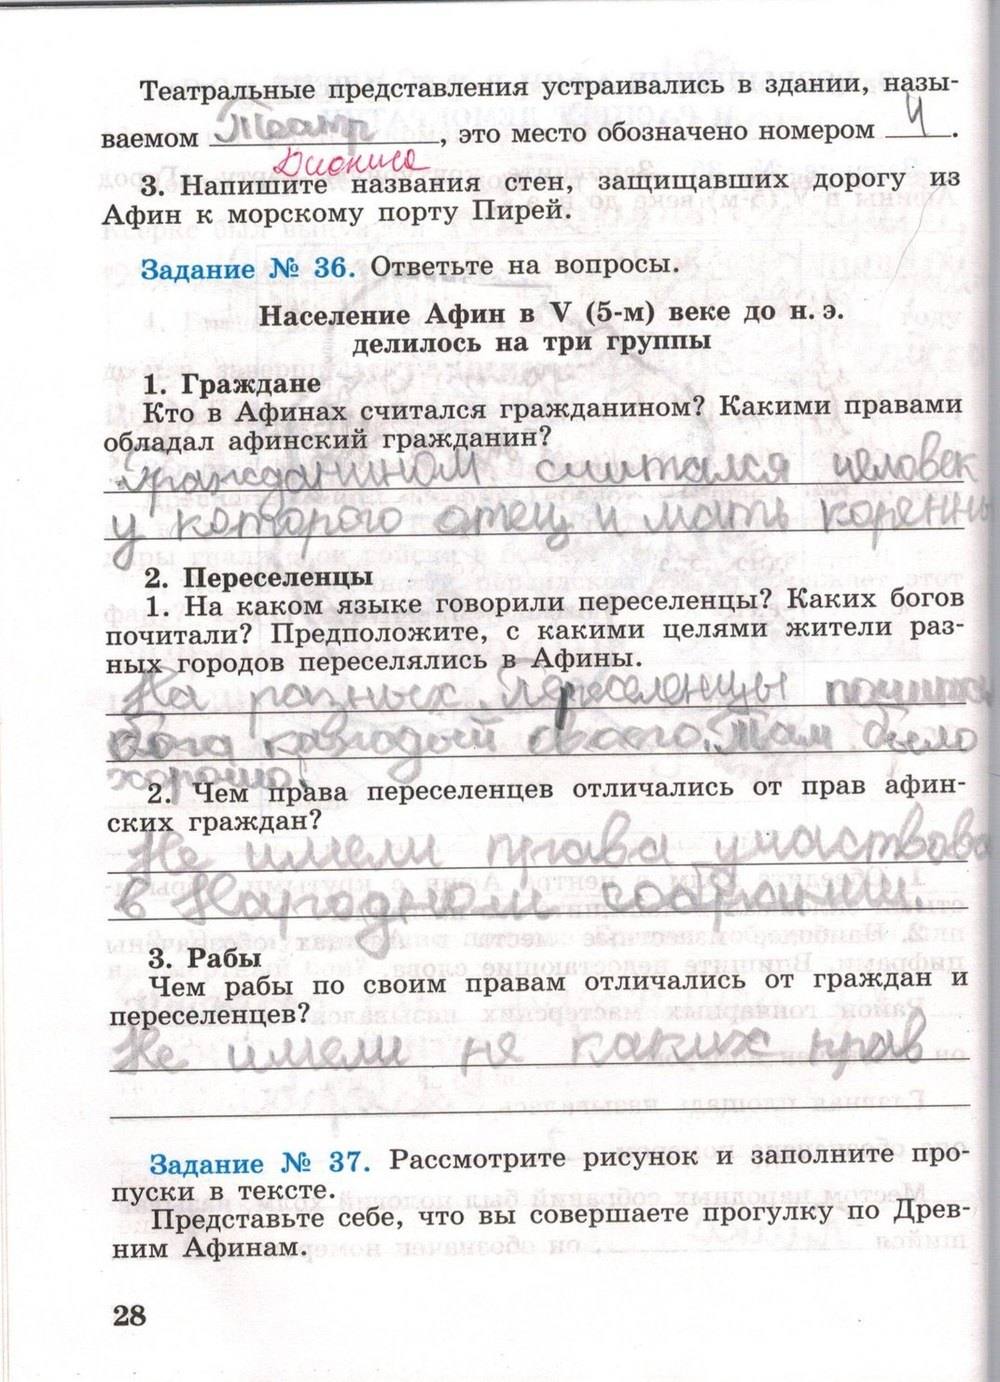 Театральные представления устраивались в здании, назы-
ваемом Театр, это место обозначено номером 4.
Диониса
3. Напишите названия стен, защищавших дорогу из
Афин к морскому порту Пирей.
Задание № 36. Ответьте на вопросы.
Население Афин в V (5-м) веке до н. э.
делилось на три группы
1. Граждане
Кто в Афинах считался гражданином? Какими правами
обладал афинский гражданин?
Гражданином считался человек
у которого отец и мать коренны
2. Переселенцы
1. На каком языке говорили переселенцы? Каких богов
почитали? Предположите, с какими целями жители раз-
ных городов переселялись в Афины.
На разных. Переселенцы почита
бога каждый своего. Там было
хорошо.
2. Чем права переселенцев отличались от прав афин-
ских граждан?
Не имели права участвова
в Народном собрании.
3. Рабы
Чем рабы по своим правам отличались от граждан и
переселенцев?
Не имели не каких прав
Задание № 37. Рассмотрите рисунок и заполните про-
пуски в тексте.
Представьте себе, что вы совершаете прогулку по Древ-
ним Афинам.
28